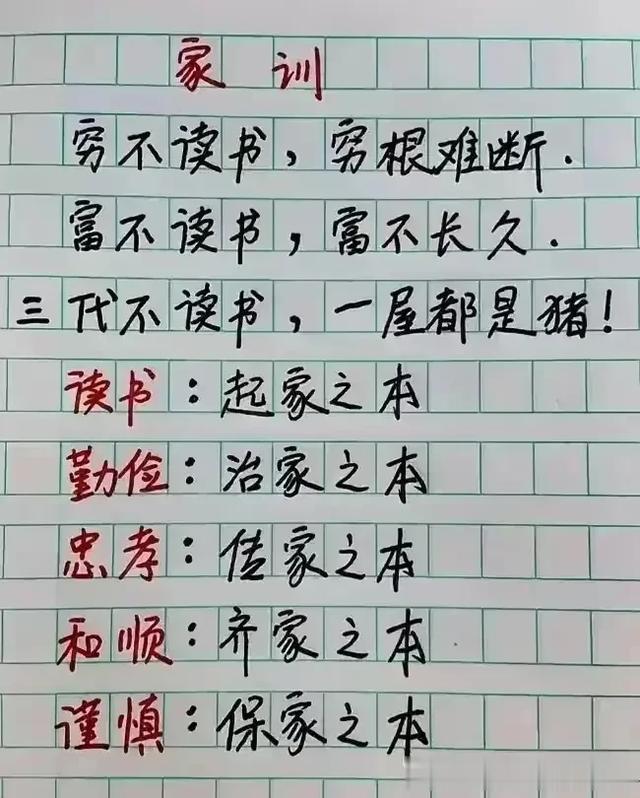 家训
穷不读书，穷根难断.
富不读书，富不长久.
三代不读书，一屋都是猪！
读书：起家之本
勤俭：治家之本
忠孝：传家之本
和顺：齐家之本
谨慎：保家之本